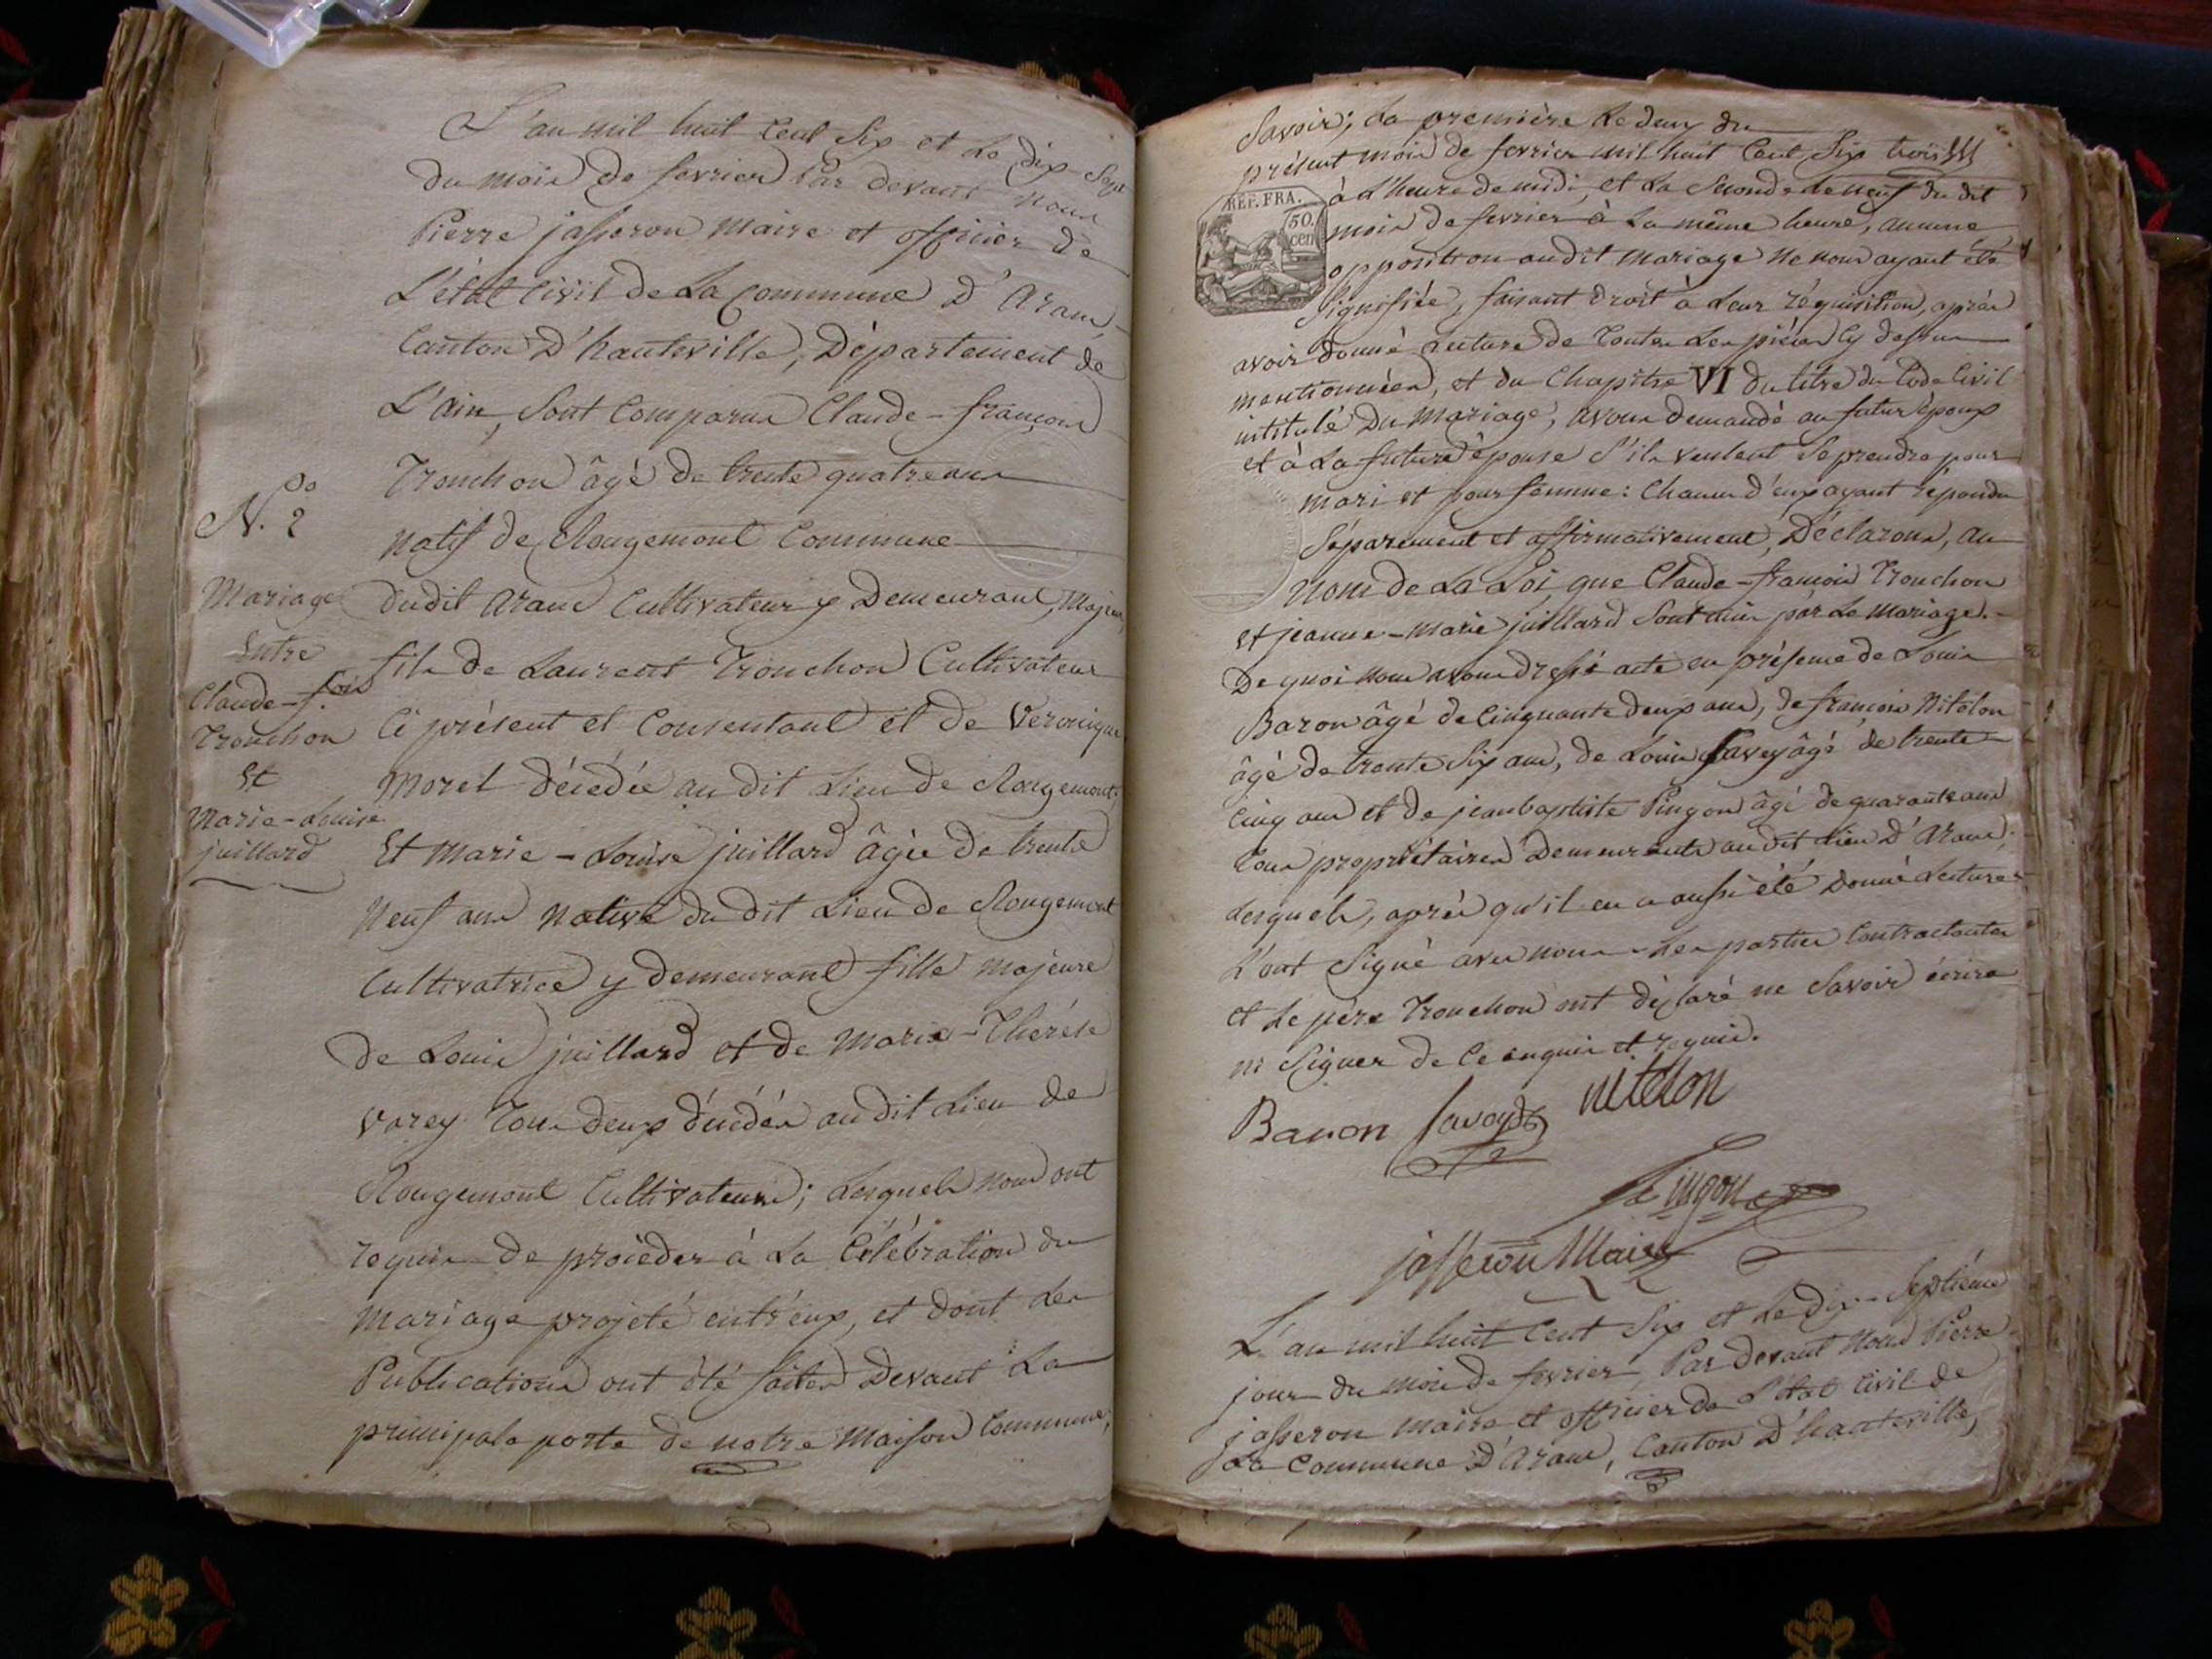 L'an mil huit Cent Six et Le dix-Sept
du mois de fevrier Par devant nous
Pierre jasseron Maire et officier de
L'état Civil de La Commune D'Aranc
Canton D'hauteville, Département de
L'ain, Sont Comparus Claude-françois
Tronchon âgé de trente quatre ans
N.º 2
natif de Rougemont Commune
Mariage
dudit Aranc Cultivateur y Demeurant, Majeur,
Entre
fils de Laurent Tronchon Cultivateur
Claude-f.ois
Ci présent et Consentant et de Veronique
Tronchon
Et
Morel décedée au dit Lieu de Rougemont.
Marie-Louise
juillard
Et Marie-Louise juillard âgée de trente
Neuf ans Native du dit Lieu de Rougemont
Cultivatrice y demeurant fille majeure
de Louis juillard et de Marie-Thérése
Varey Tous deux décédés au dit Lieu de
Rougemont Cultivateurs; Lesquels nous ont
requis de procéder à La Célébration du
Mariage projeté entr'eux, et dont Les
Publications ont été faites Devant La
principale porte de notre Maison Commune,
Savoir; La première Le deux du
présent mois de fevrier mil huit Cent Six
à L'heure de midi, et La Seconde Le neuf du dit
REP. FRA.
50.
cen
mois de fevrier à La même heure, aucune
opposition audit Mariage Ne nous ayant été
Signifiée, faisant droit à Leur réquisition, après
avoir donné Lecture de Toutes Les pièces Cy dessus
mentionnées, et du Chapitre VI du titre du Code Civil
intitulé Du Mariage, avons demandé au futur époux
et à La future épouse S'ils veulent Se prendre pour
mari et pour femme: Chacun d'eux ayant repondu
Séparement et affirmativement, Déclarons, au
Nom de La Loi, que Claude-françois Tronchon
et jeanne-marie juillard Sont unis par Le Mariage.
De quoi nous avons dressé acte en présence de Louis
Baron âgé de Cinquante deux ans, de françois Nitelon
âgé de trente Six ans, de Louis Savey âgé de trente
Cinq ans et de jean baptiste Pingon âgé de quarante ans
tous propriétaires Demeurants au dit Lieu D'Aranc,
Lesquels, après qu'il en a aussi été Donné Lecture
L'ont Signé avec nous Les parties Contractantes
et Le père Tronchon ont déclaré ne Savoir écrire
ni Signer de Ce enquis et requis.
Baron Savey nitelon
Pingon
jasseron Maire
L'an mil huit Cent Six et Le Dix-Septième
jour du mois de fevrier Par devant Nous Pierre
jasseron Maire et officier de L'état Civil de
La Commune D'Aranc, Canton D'hauteville,